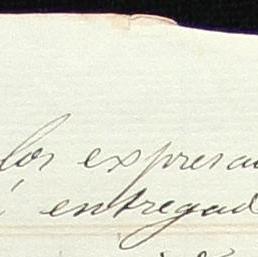 los expresa
entregad